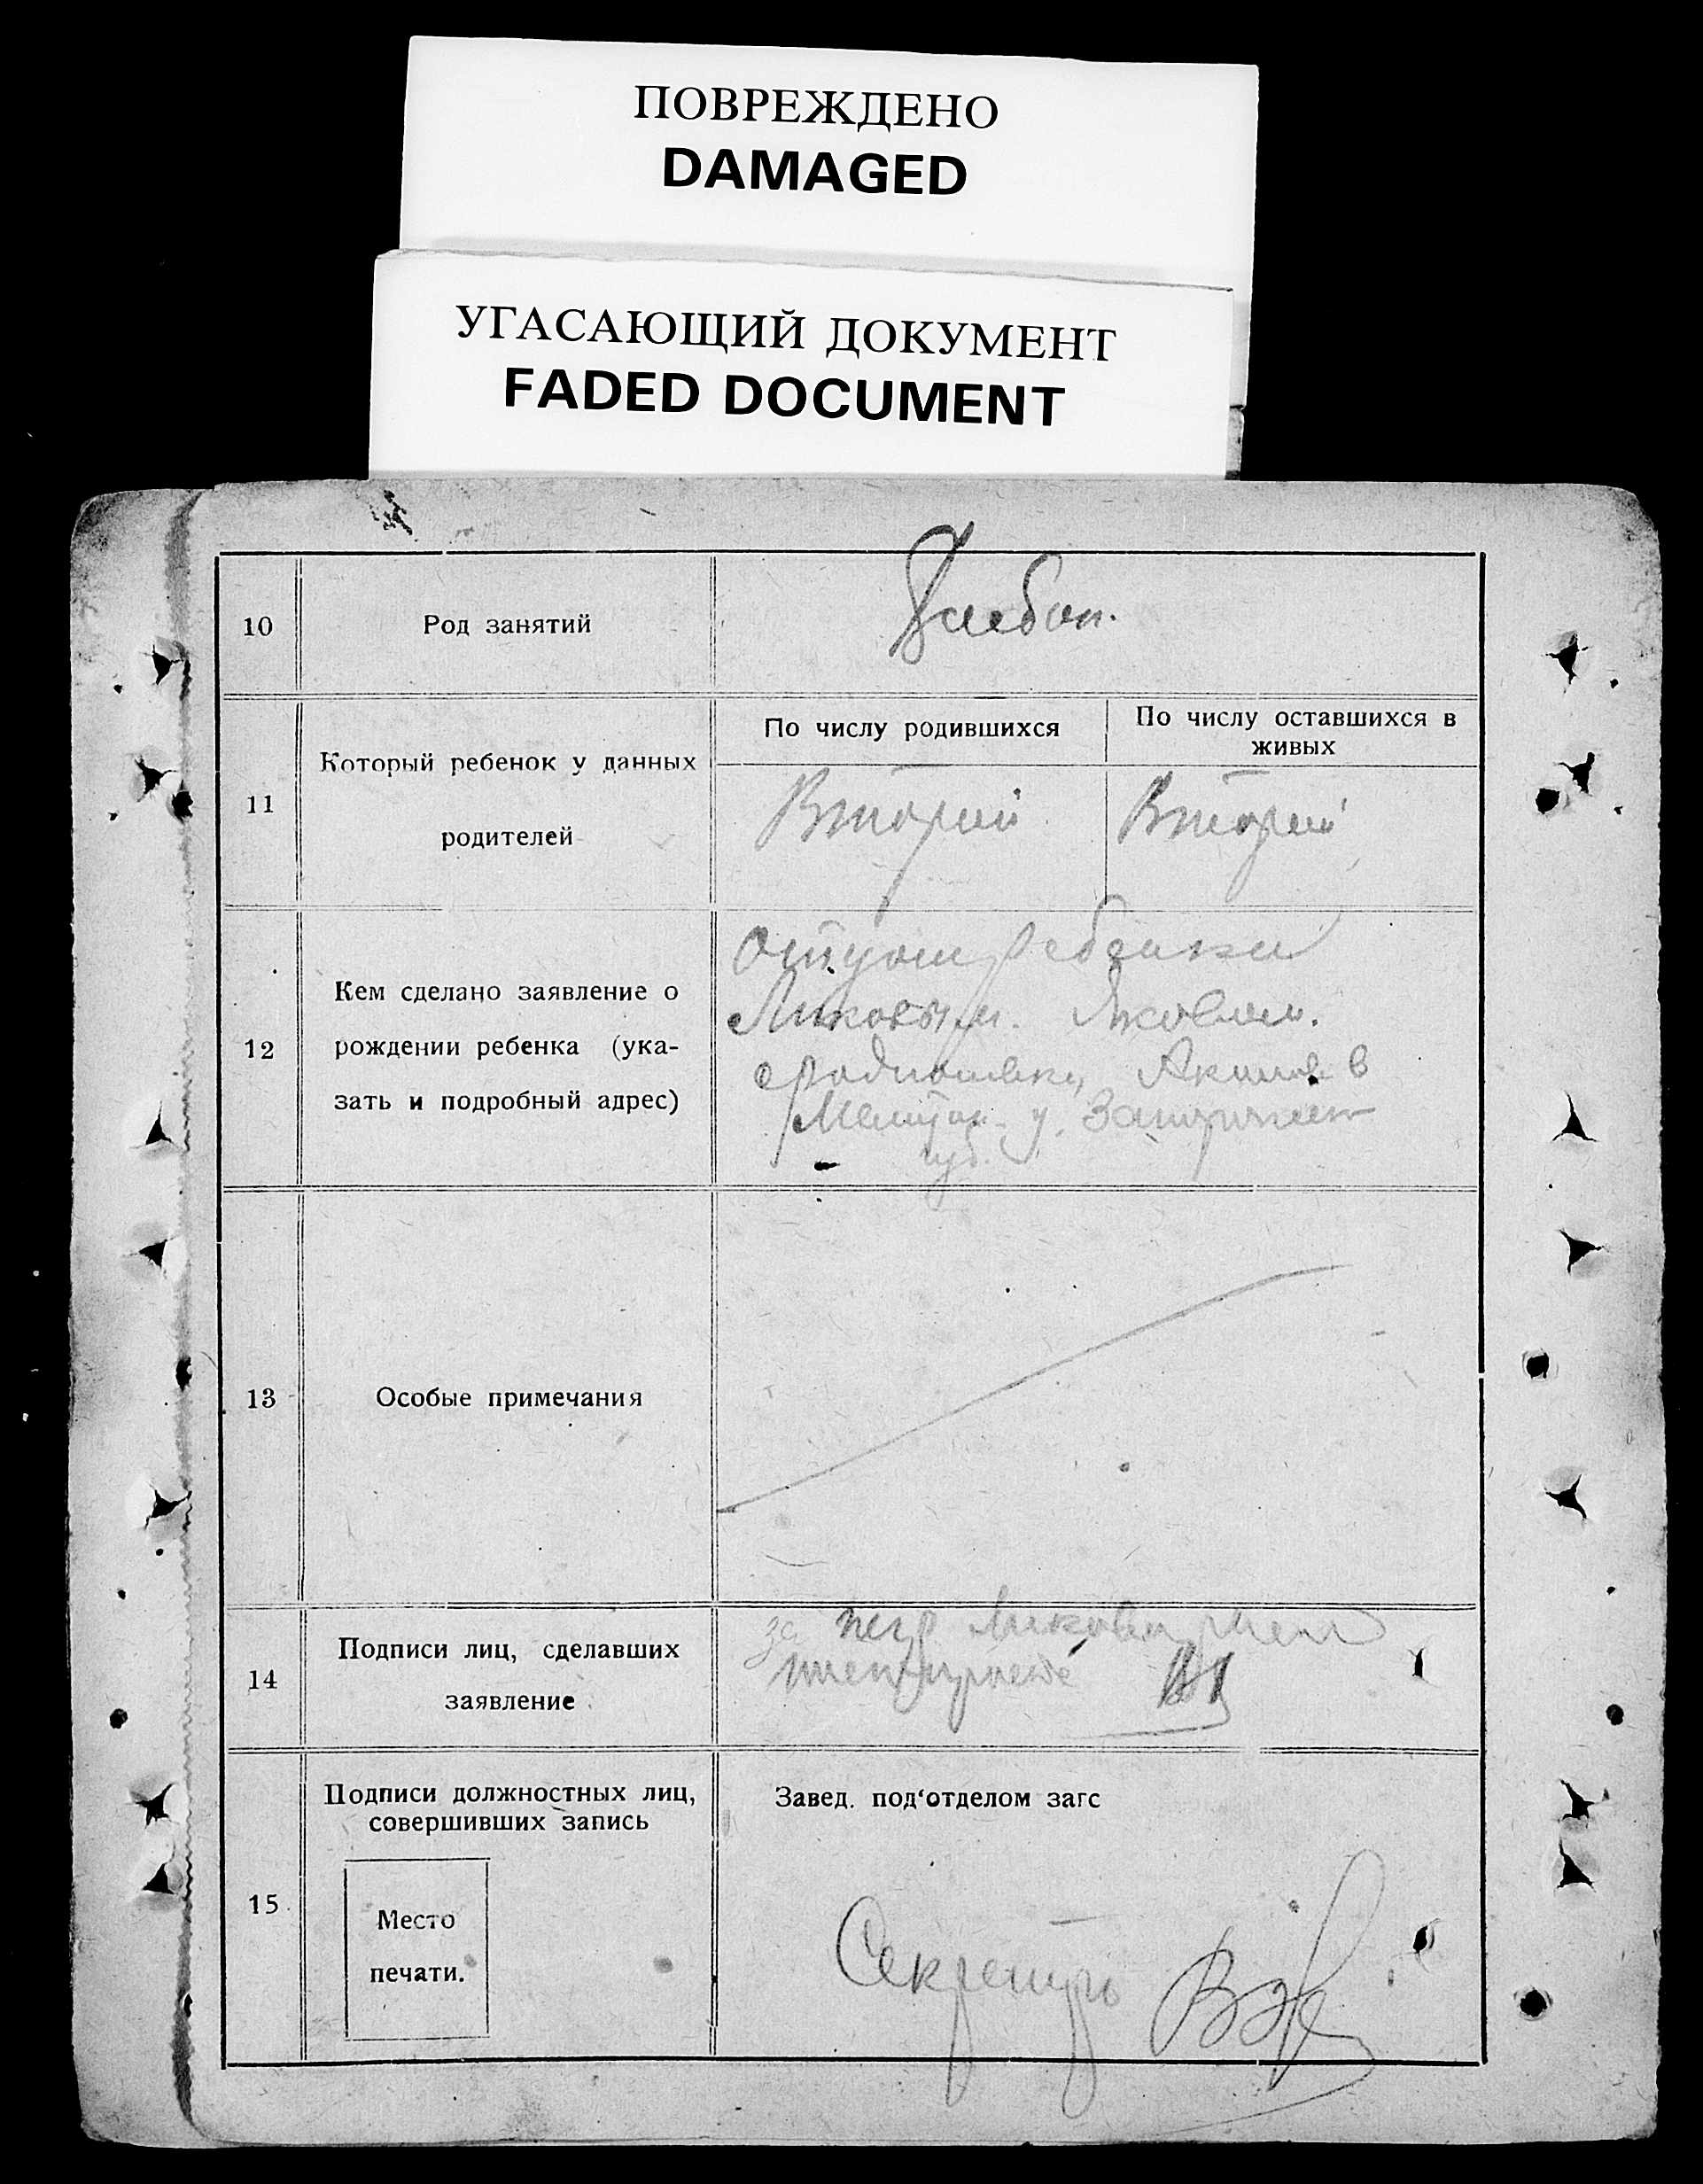 ПОВРЕЖДЕНО
DAMAGED
УГАСАЮЩИЙ ДОКУМЕНТ
FADED DOCUMENT
10
Род занятий
Хлебоп.
11
Который ребенок у данных
родителей
По числу родившихся
По числу оставшихся в
живых
Второй
Второй
12
Кем сделано заявление о
рождении ребенка (ука-
зать и подробный адрес)
Отцом ребенка
Яковом.
с Родионовки, Акимов в
Мелитоп. у. Запорожск
губ.
13
Особые примечания
14
Подписи лиц, сделавших
заявление
за негр
15
Подписи должностных лиц,
совершивших запись
Место
печати.
Завед. под‘отделом загс
Секретарь